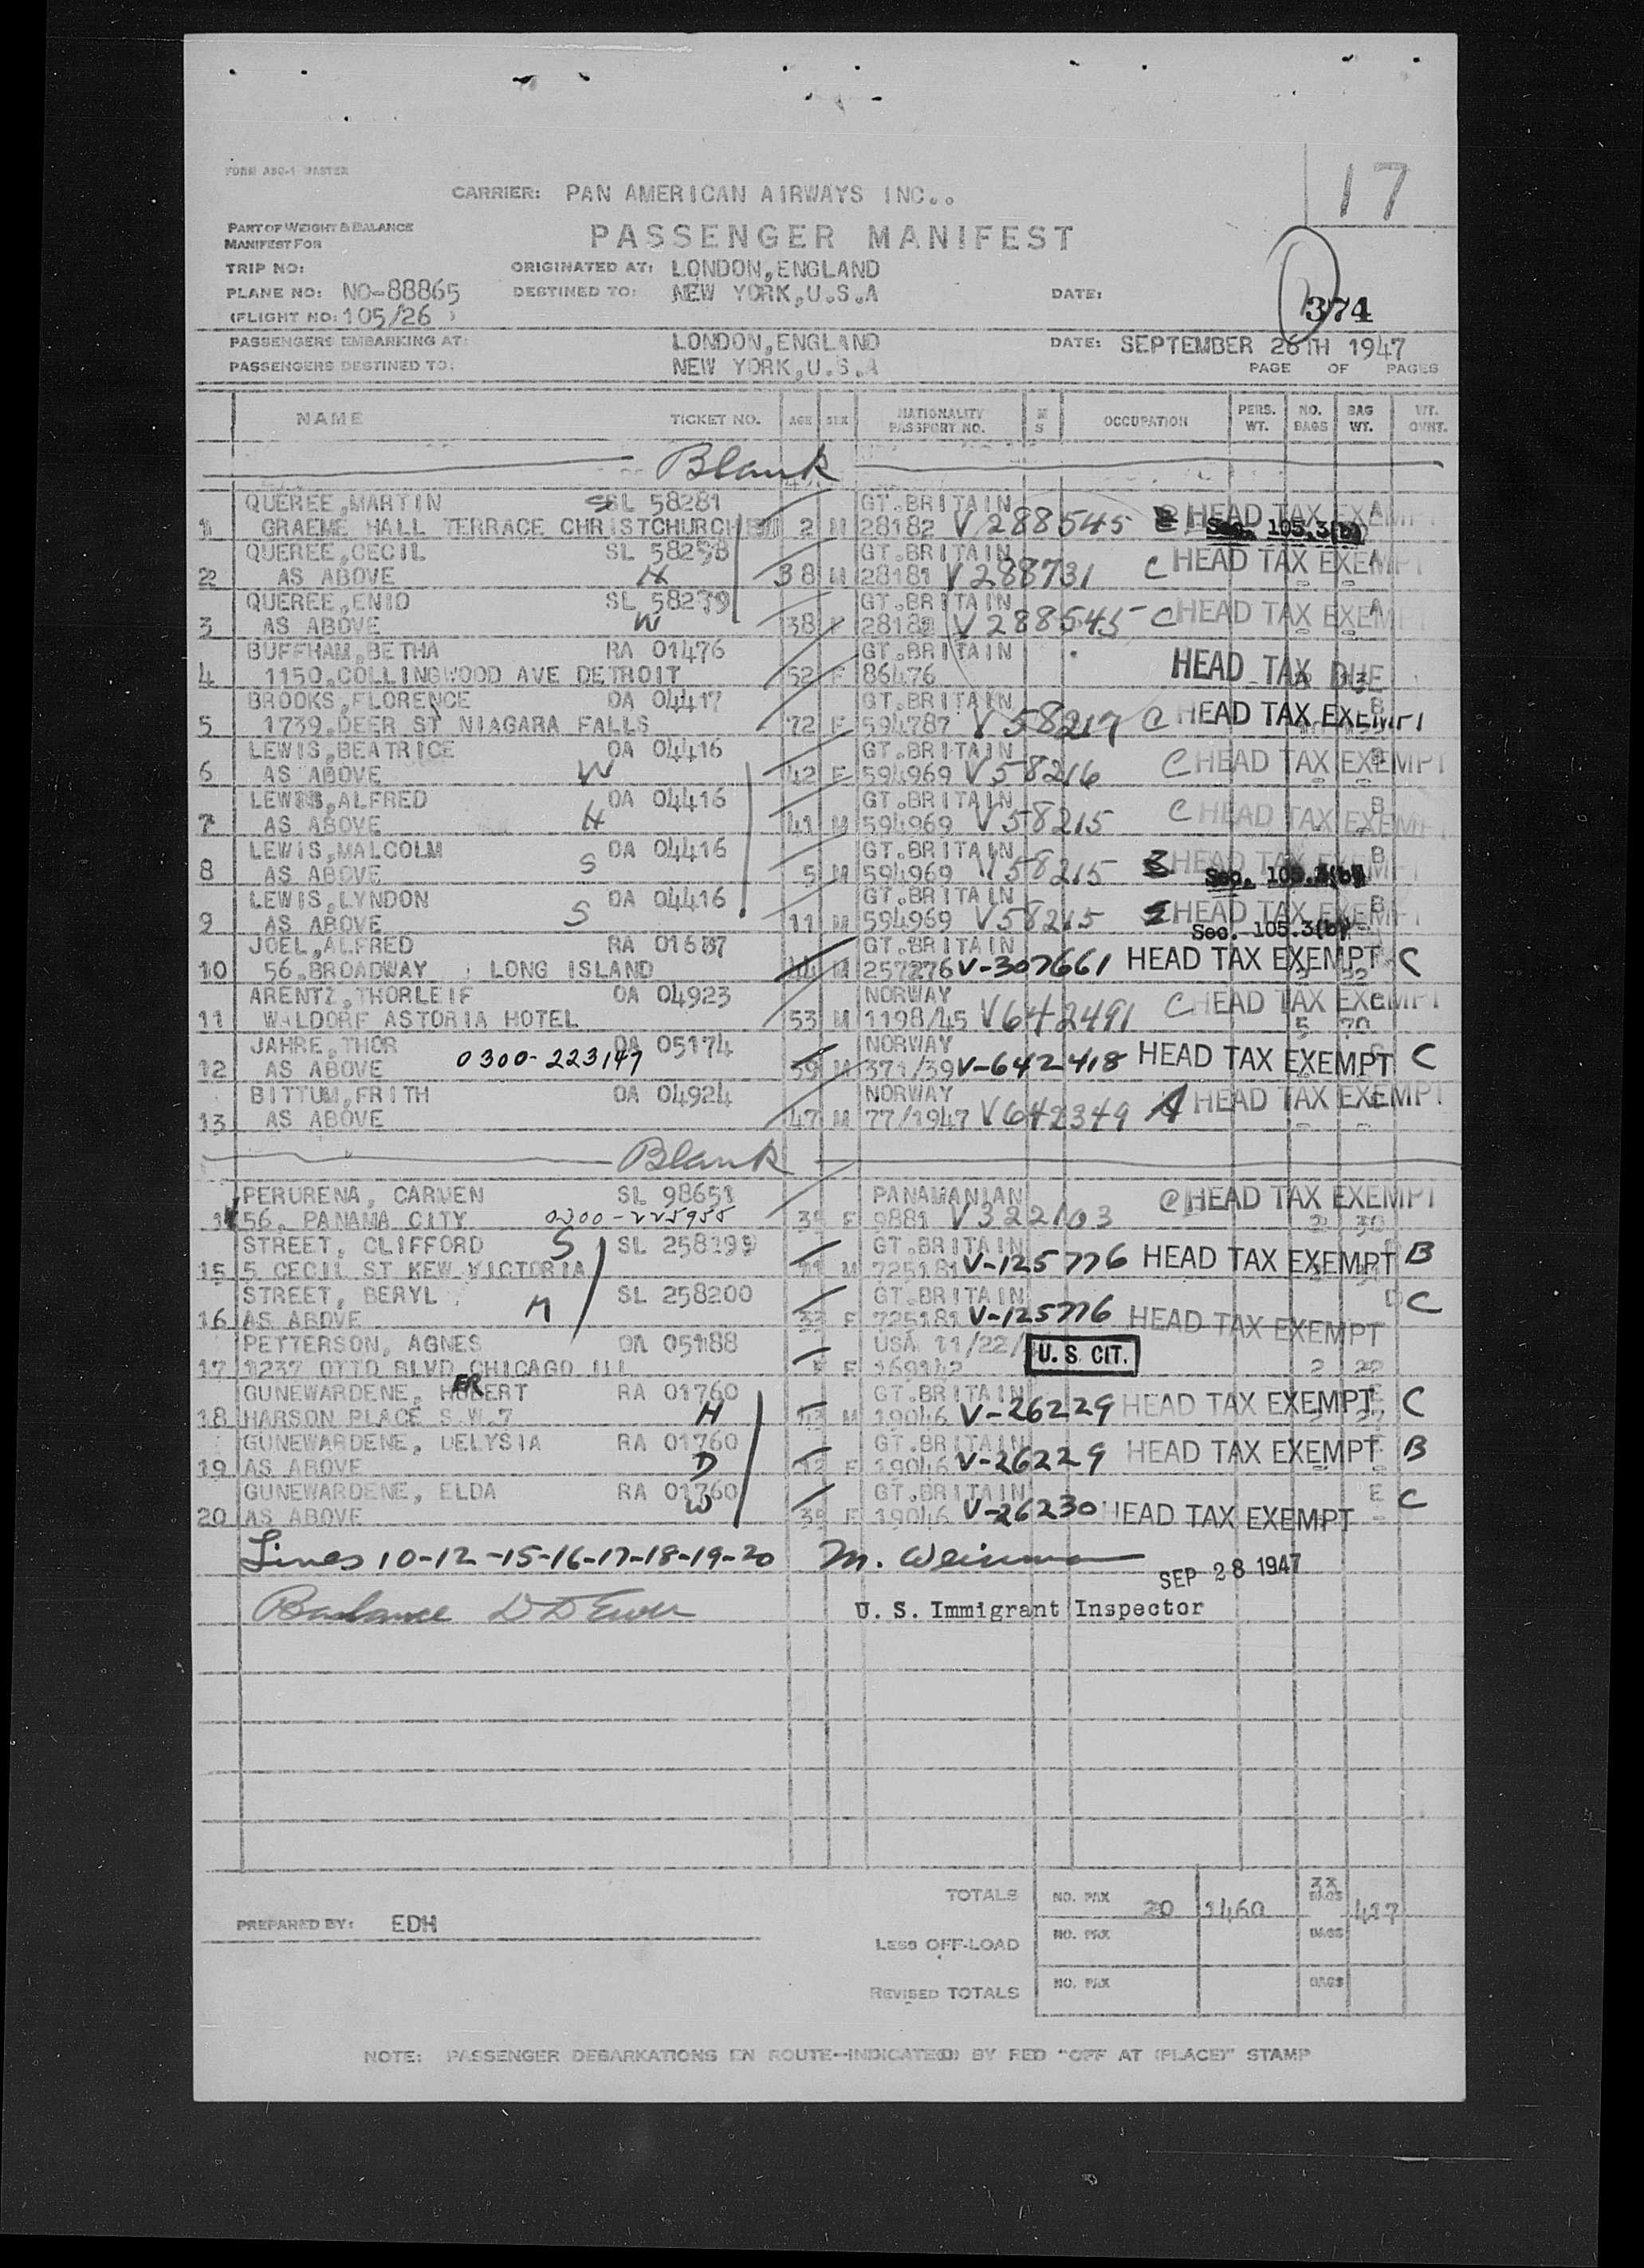 17
FORM ABC-1 MASTER
CARRIER: PAN AMERICAN AIRWAYS INC..
PART OF WEIGHT & BALANCE
MANIFEST FOR
PASSENGER MANIFEST
TRIP NO: ORIGINATED AT: LONDON,ENGLAND
PLANE NO: NC-88865 DESTINED TO: NEW YORK,U.S.A DATE:
(FLIGHT NO: 105/26 ) 374
PASSENGERS EMBARKING AT: LONDON,ENGLAND DATE: SEPTEMBER 26TH 1947
PASSENGERS DESTINED TO: NEW YORK,U.S.A PAGE OF PAGES
NAME TICKET NO. AGE SEX NATIONALITY PASSPORT NO. M S OCCUPATION PERS. WT. NO. BAGS BAG WT. WT. OVHT.
Blank
QUEREE,MARTIN SL 58281 GT.BRITAIN HEAD TAX EXEMPT A
1 GRAEME HALL TERRACE CHRISTCHURCH 2 M 28182 V288545 Sec. 105.3(b)
QUEREE,CECIL SL 58298 GT.BRITAIN
2 AS ABOVE H 38 M 28181 V288731 C HEAD TAX EXEMPT A
QUEREE,ENID SL 58299 GT.BRITAIN
3 AS ABOVE W 38 F 28182 V288545 - C HEAD TAX EXEMPT A
BUFFHAM,BETHA RA 01476 GT.BRITAIN
4 1150,COLLINGWOOD AVE DETROIT 52 F 86476 HEAD TAX DUE
BROOKS,FLORENCE OA 04417 GT.BRITAIN B
5 1739.DEER ST NIAGARA FALLS 72 F 594787 V58217 C HEAD TAX EXEMPT
LEWIS,BEATRICE OA 04416 GT.BRITAIN B
6 AS ABOVE W 42 F 594969 V58216 C HEAD TAX EXEMPT
LEWIS,ALFRED OA 04416 GT.BRITAIN B
7 AS ABOVE H 41 M 594969 V58215 C HEAD TAX EXEMPT
LEWIS,MALCOLM OA 04416 GT.BRITAIN B
8 AS ABOVE S 5 M 594969 V58215 HEAD TAX EXEMPT Sec. 105.3(b)
LEWIS,LYNDON OA 04416 GT.BRITAIN B
9 AS ABOVE S 11 M 594969 V58215 HEAD TAX EXEMPT Sec. 105.3(b)
JOEL,ALFRED RA 01687 GT.BRITAIN
10 56.BROADWAY LONG ISLAND 44 M 257276 V-307661 HEAD TAX EXEMPT C
ARENTZ,THORLEIF OA 04923 NORWAY
11 WALDORF ASTORIA HOTEL 53 M 1198/45 V642491 C HEAD TAX EXEMPT 5 70
JAHRE,THOR OA 05174 NORWAY
12 AS ABOVE 0300-223147 59 M 371/39 V-642418 HEAD TAX EXEMPT C
BITTUM,FRITH OA 04924 NORWAY
13 AS ABOVE 47 M 77/1947 V642349 A HEAD TAX EXEMPT
Blank
PERURENA, CARMEN SL 98651 PANAMANIAN C HEAD TAX EXEMPT
14 56, PANAMA CITY 0300-225955 35 F 9881 V322103 2 30
STREET, CLIFFORD S SL 258199 GT.BRITAIN
15 5 CECIL ST KEW VICTORIA M 725181 V-125776 HEAD TAX EXEMPT B
STREET, BERYL SL 258200 GT.BRITAIN D C
16 AS ABOVE M 32 F 725181 V-125776 HEAD TAX EXEMPT
PETTERSON, AGNES OA 05188 USA 11/22/ U. S. CIT.
17 1237 OTTO BLVD CHICAGO ILL F 169142 2 22
GUNEWARDENE, HERBERT RA 01760 GT.BRITAIN E
18 HARSON PLACE S.W.7 H 43 M 19046 V-26229 HEAD TAX EXEMPT C
GUNEWARDENE, DELYSIA RA 01760 GT.BRITAIN
19 AS ABOVE D 12 F 19046 V-26229 HEAD TAX EXEMPT B
GUNEWARDENE, ELDA RA 01760 GT.BRITAIN E C
20 AS ABOVE W 35 F 19046 V-26230 HEAD TAX EXEMPT
Lines 10-12-15-16-17-18-19-20 M. Weinman SEP 28 1947
Balance U. S. Immigrant Inspector
TOTALS NO. PAX 20 3460 BAGS 417
PREPARED BY: EDH
LESS OFF-LOAD NO. PAX BAGS
REVISED TOTALS NO. PAX BAGS
NOTE: PASSENGER DEBARKATIONS EN ROUTE--INDICATED BY RED "OFF AT (PLACE)" STAMP